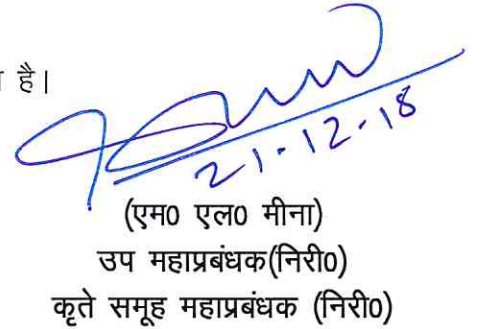 है।
21-12-18
(एम0 एल0 मीना)
उप महाप्रबंधक(निरी0)
कृते समूह महाप्रबंधक (निरी0)